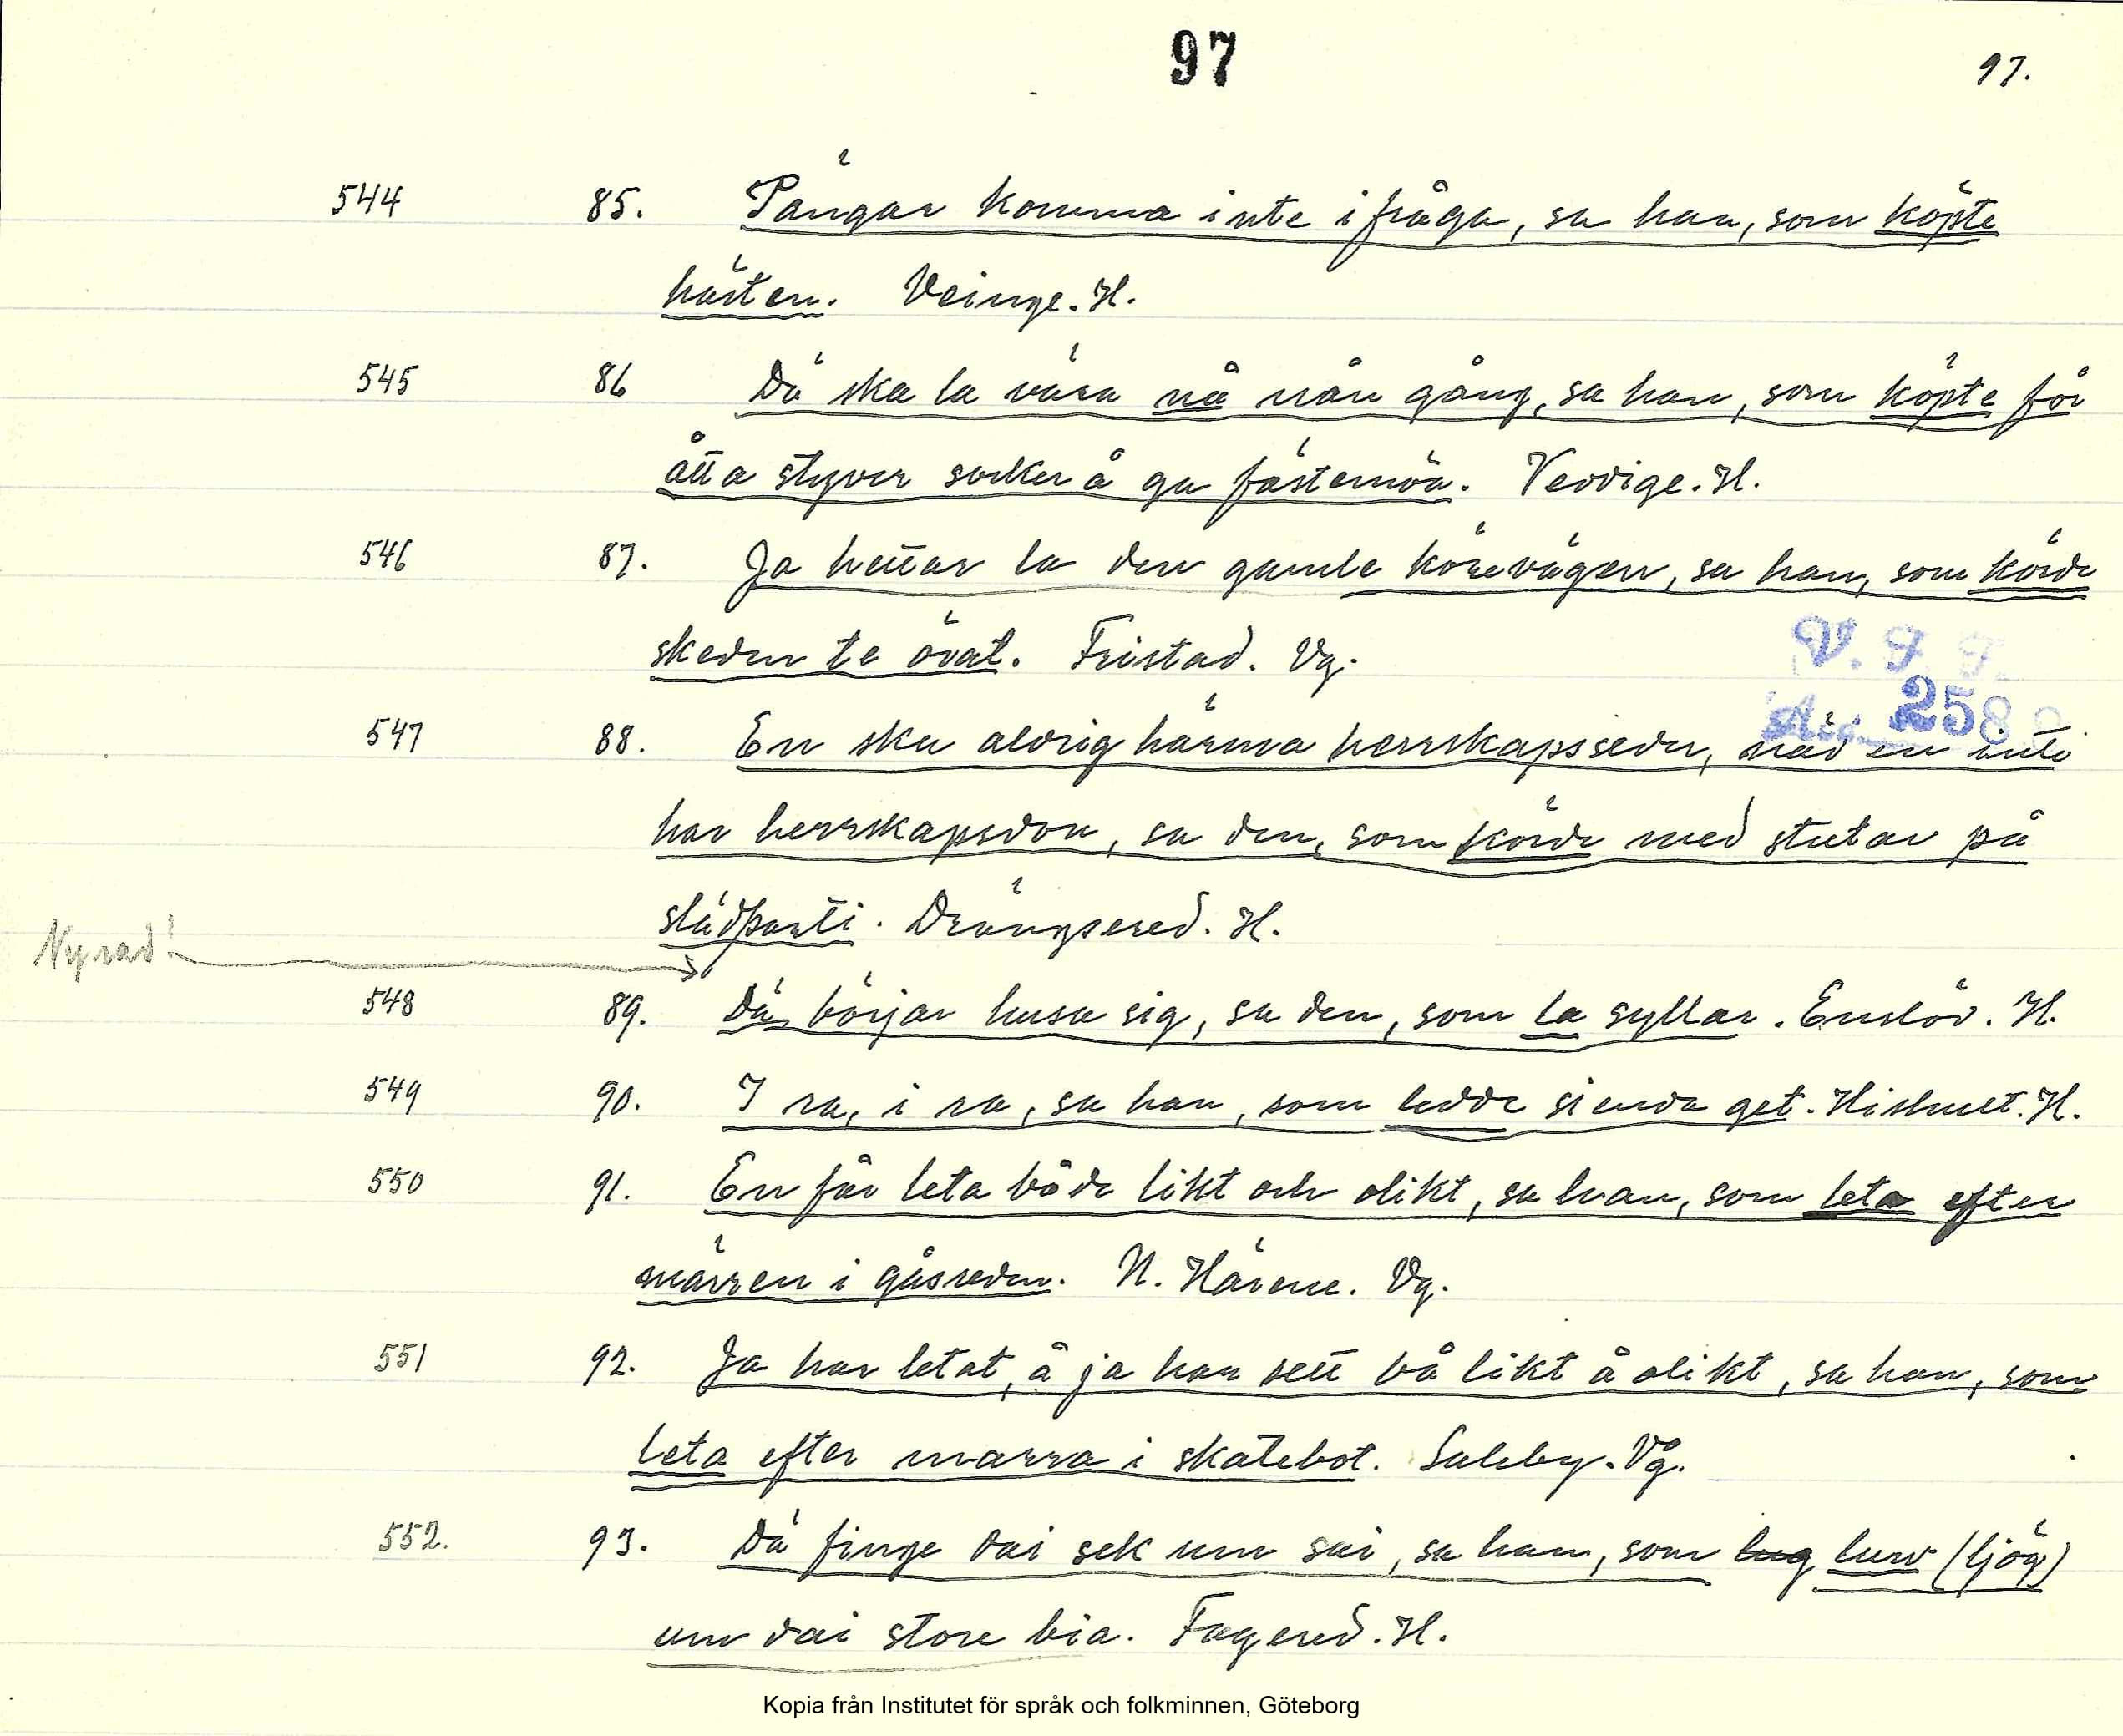 97
97.
544 85. Pängar komma inte ifråga, sa han, som köpte
hästen. Veinge. H.
545 86 Dä ska la vära nå nån gång, sa han, som köpte för
åtta styver socker å ga fästemöa. Veddige. H.
546 87. Ja hettar la den gamle körevägen, sa han, som körde
skeden te övat. Fristad. Vg.
V. F. F.
Acc. 258
547 88. En ska aldrig härma herrskapsseder, näd en inte
har herrskapsdon, sa den, som körde med stutar på
slädparti. Drängsered. H.
Ny rad!
548 89. Dä börjar husa sig, sa den, som la syllar. Enslöv. H.
549 90. I ra, i ra, sa han, som ledde si enda get. Hishult. H.
550 91. En får leta både likt och olikt, sa han, som leta efter
märren i gåsreden. N. Härene. Vg.
551 92. Ja har letat, å ja har sett bå likt å olikt, sa han, som
leta efter marra i skatebot. Saleby. Vg.
552. 93. Dä finge dai sek um sai, sa han, som lug luw (ljög)
um dai store bia. Fagered. H.
Kopia från Institutet för språk och folkminnen, Göteborg